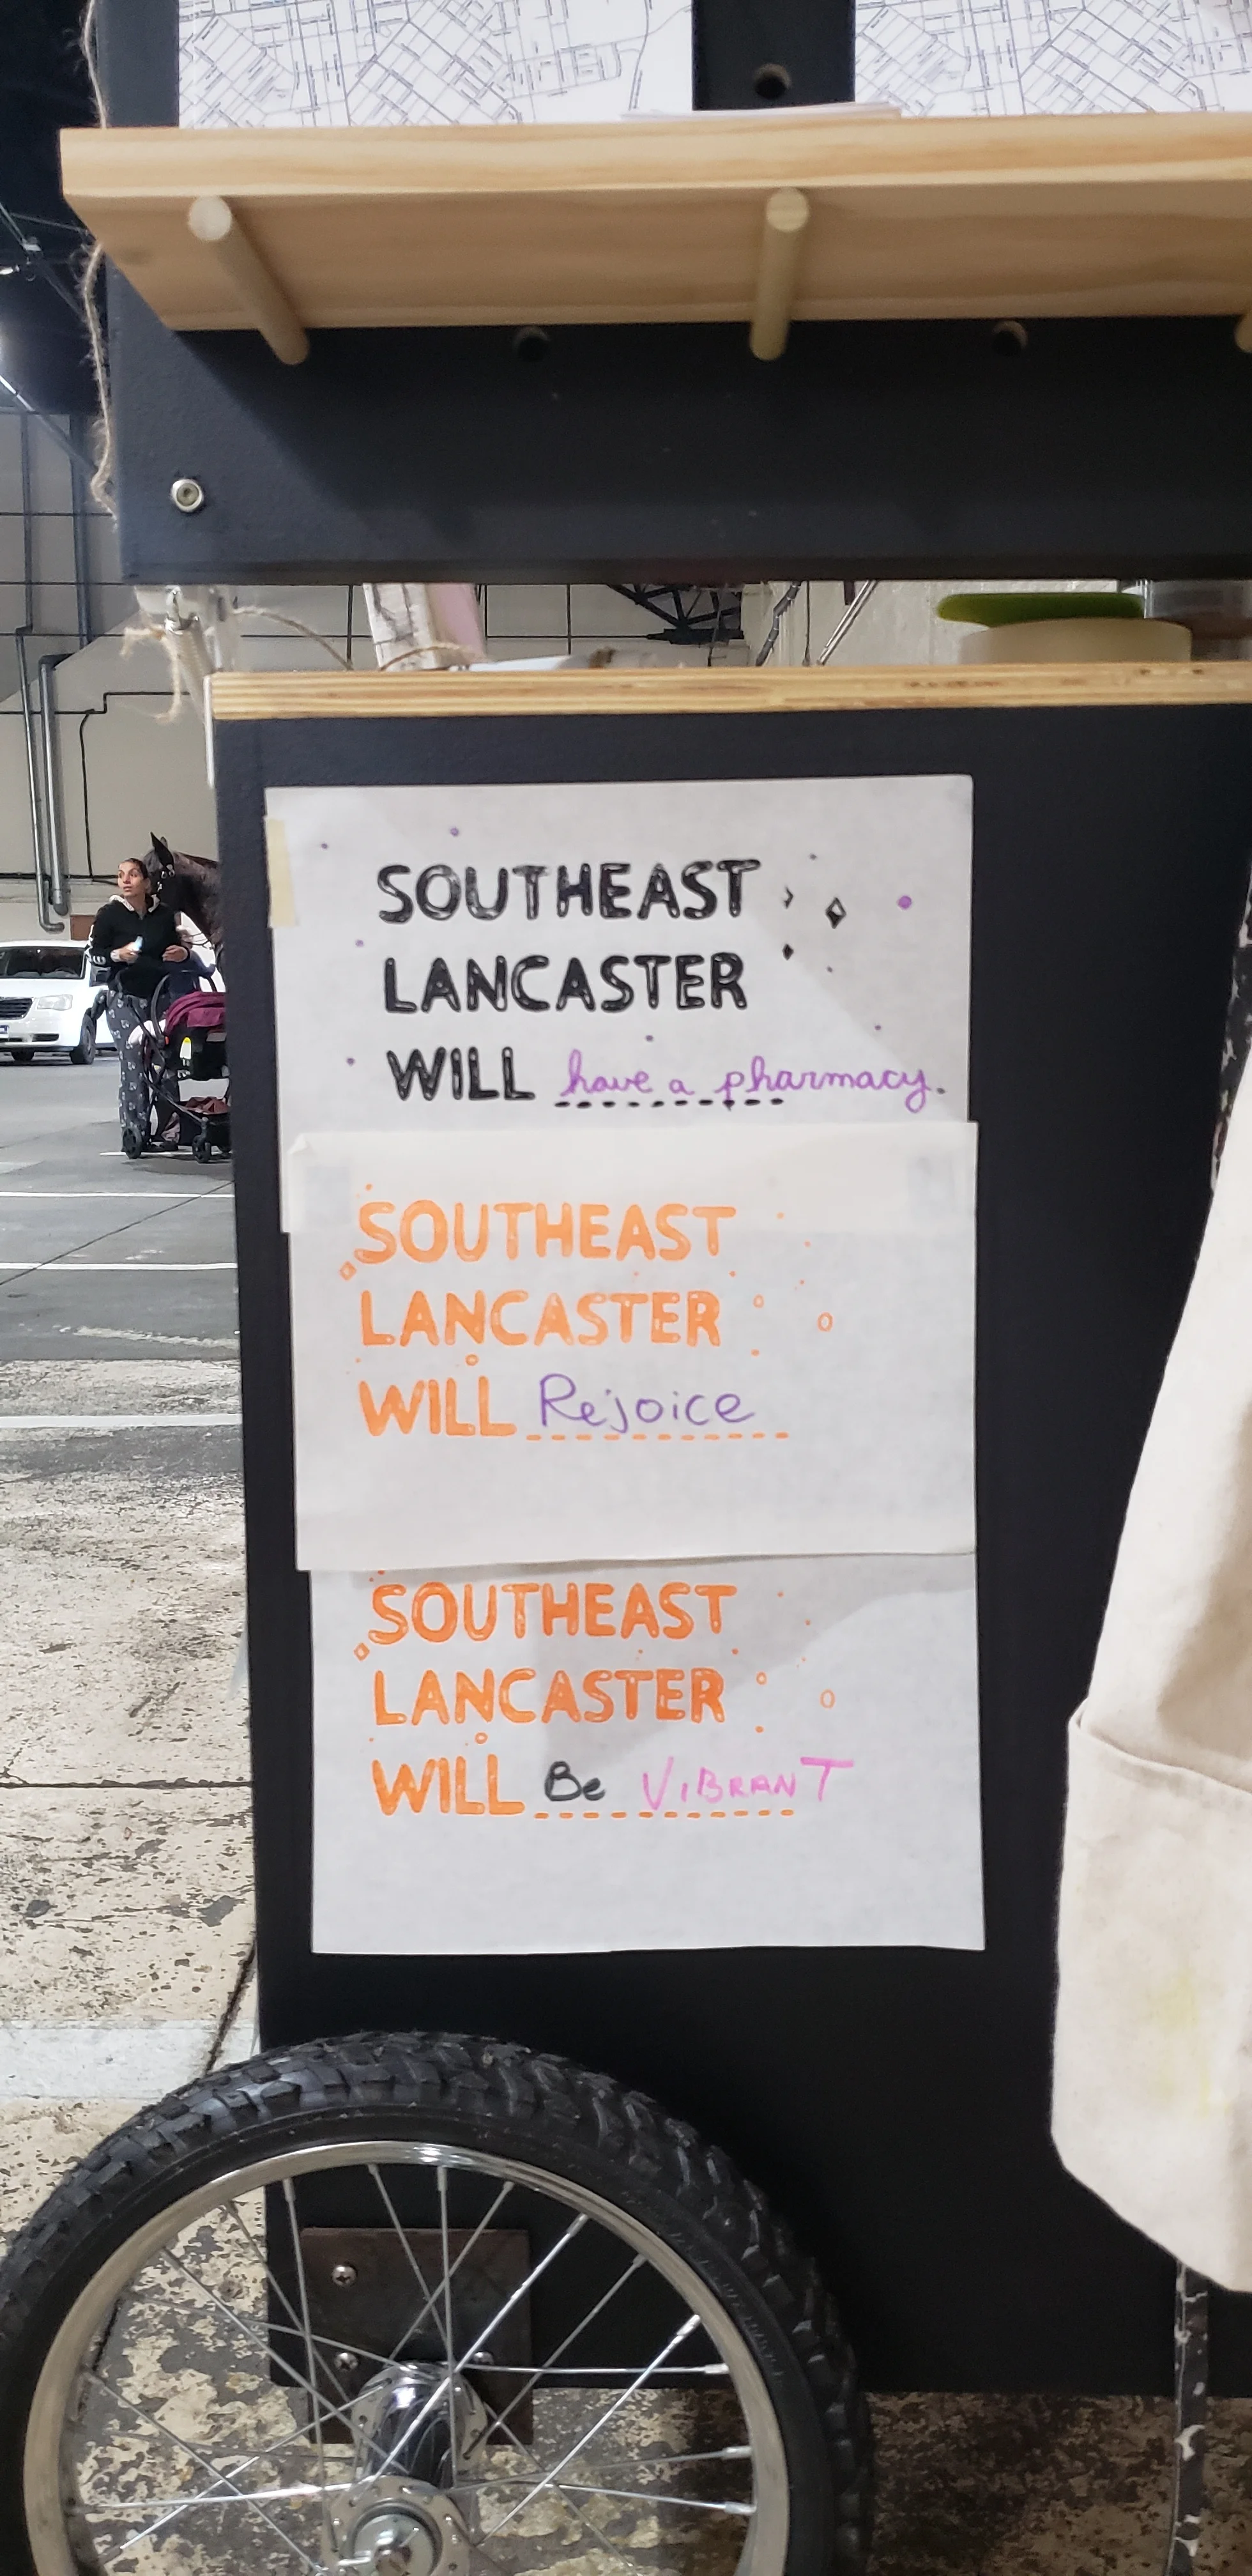 SOUTHEAST
LANCASTER
WILL have a pharmacy.
SOUTHEAST
LANCASTER
WILL Rejoice
SOUTHEAST
LANCASTER
WILL Be ViBRANT